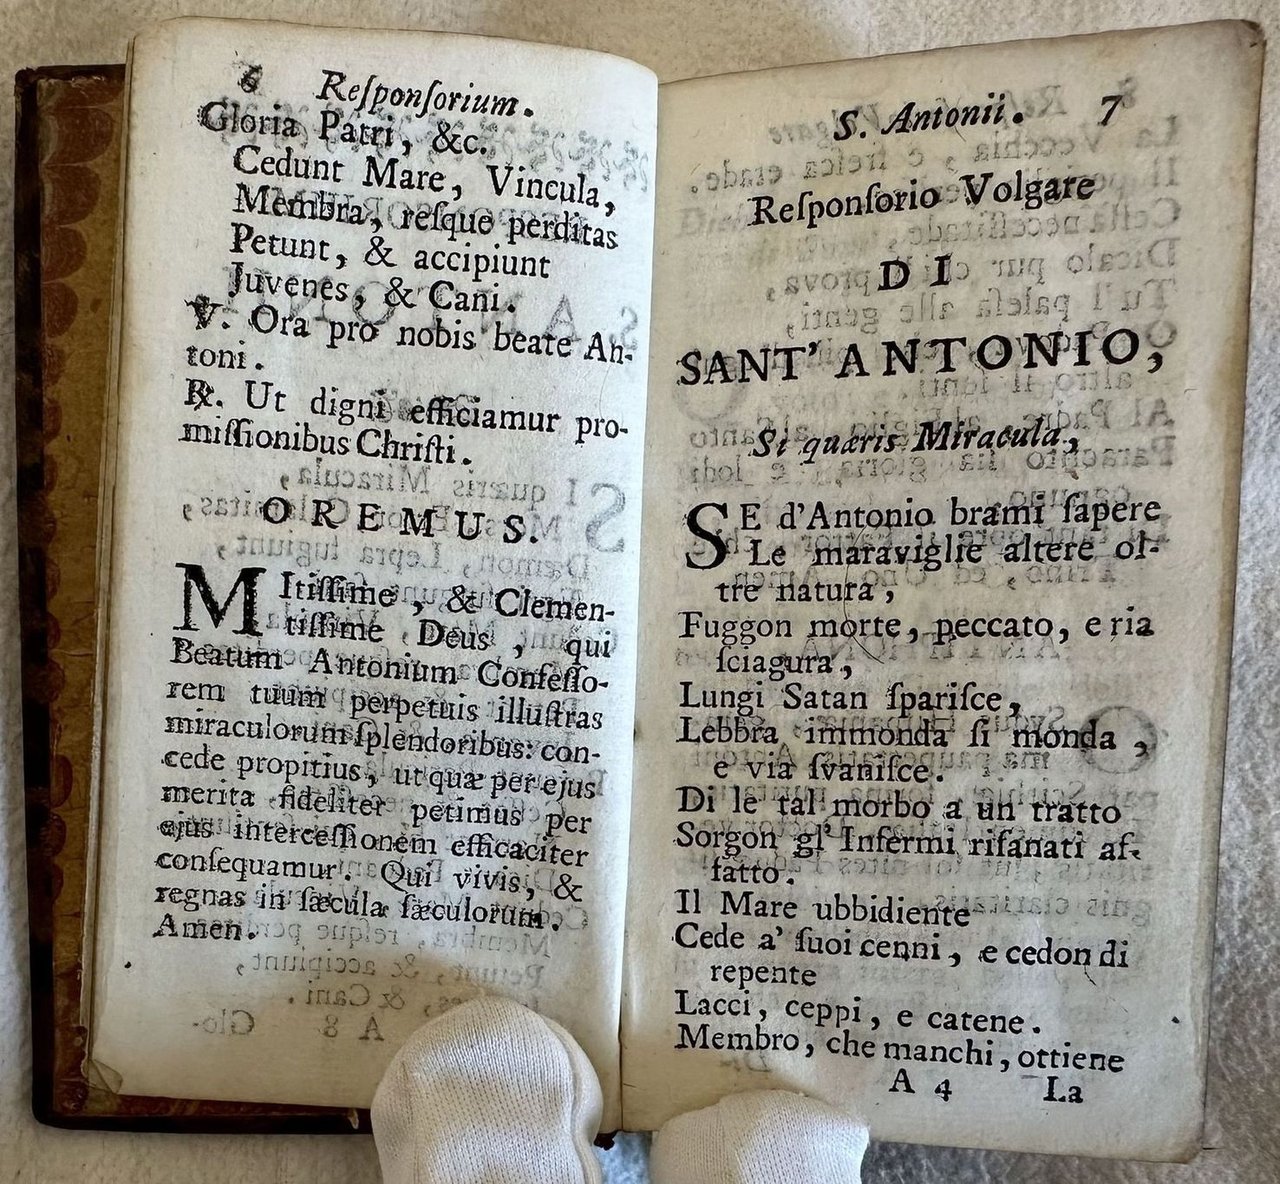 6 Reſponſorium.
Gloria Patri, &c.
Cedunt Mare, Vincula,
Membra, reſque perditas
Petunt, & accipiunt
Juvenes, & Cani.
℣. Ora pro nobis beate An-
toni.
℟. Ut digni efficiamur pro-
miſſionibus Chriſti.
OREMUS.
MItiſſime, & Clemen-
tiſſime Deus, qui
Beatum Antonium Confeſſo-
rem tuum perpetuis illuſtras
miraculorum ſplendoribus: con-
cede propitius, ut quæ per ejus
merita fideliter petimus per
ejus interceſſionem efficaciter
conſequamur. Qui vivis, &
regnas in ſæcula ſæculorum.
Amen.
S. Antonii. 7
Reſponſorio Volgare
DI
SANT' ANTONIO,
Si quæris Miracula,
SE d'Antonio brami ſapere
Le maraviglie altere ol-
tre natura,
Fuggon morte, peccato, e ria
ſciagura,
Lungi Satan ſpariſce,
Lebbra immonda ſi monda,
e via ſvaniſce.
Di le tal morbo a un tratto
Sorgon gl' Infermi riſanati af-
fatto.
Il Mare ubbidiente
Cede a' ſuoi cenni, e cedon di
repente
Lacci, ceppi, e catene.
Membro, che manchi, ottiene
A 4 La